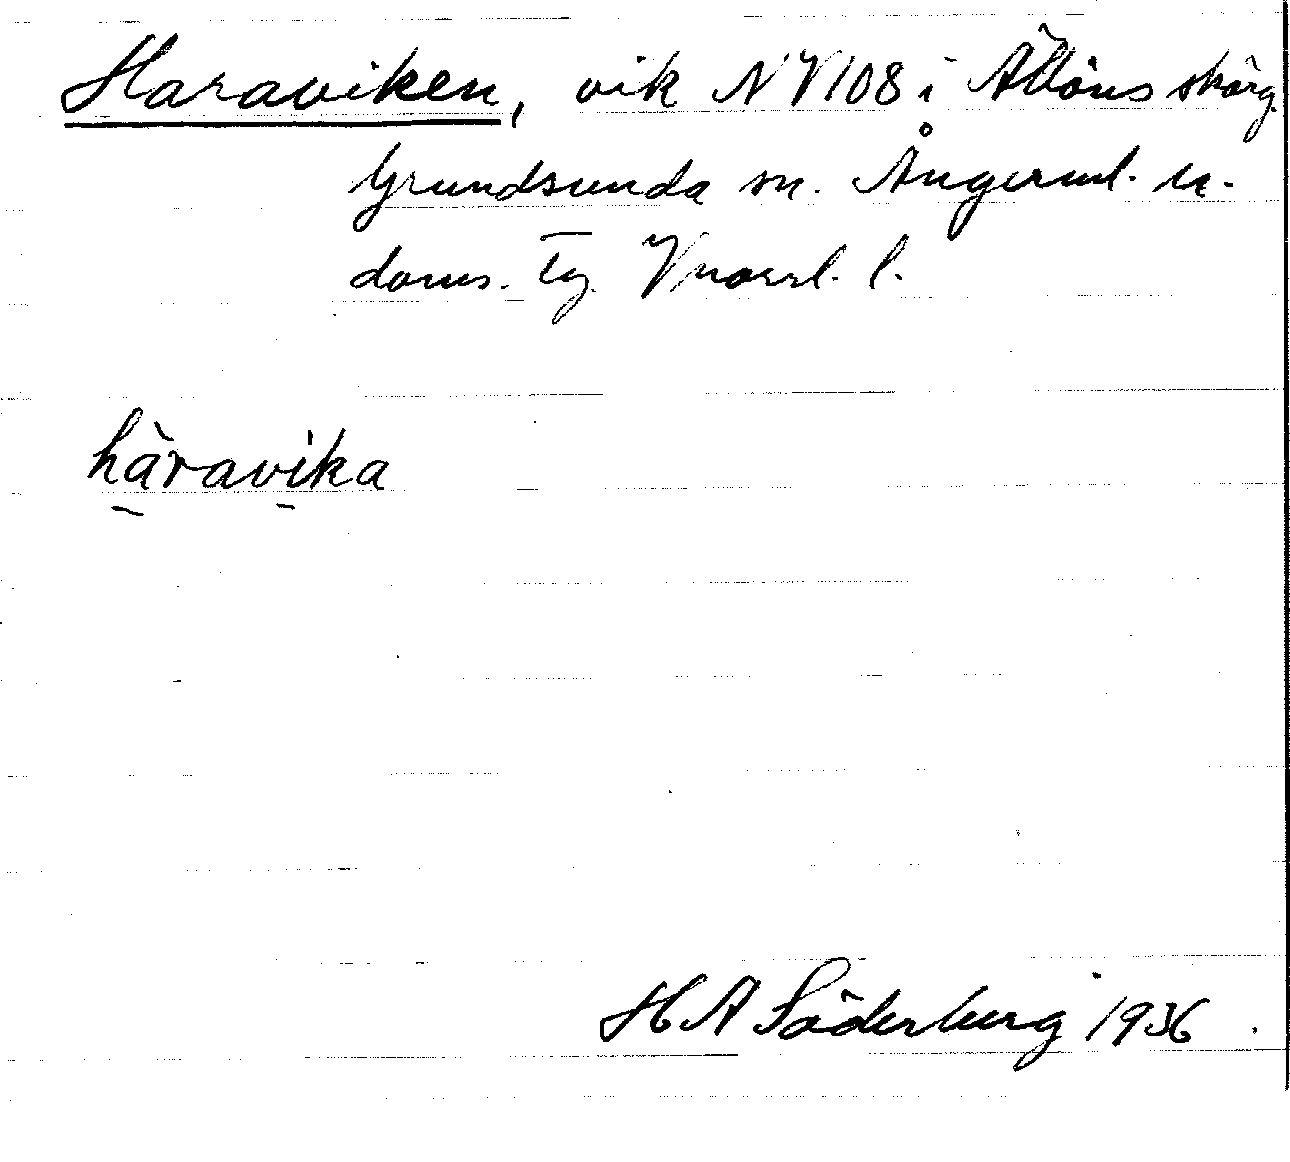 Haraviken, vik NV108 i Ällöns skärg.
Grundsunda sn. Ångerml. n.
doms. Tg. Vnorrl. l.
häravika
H A Söderberg 1936.